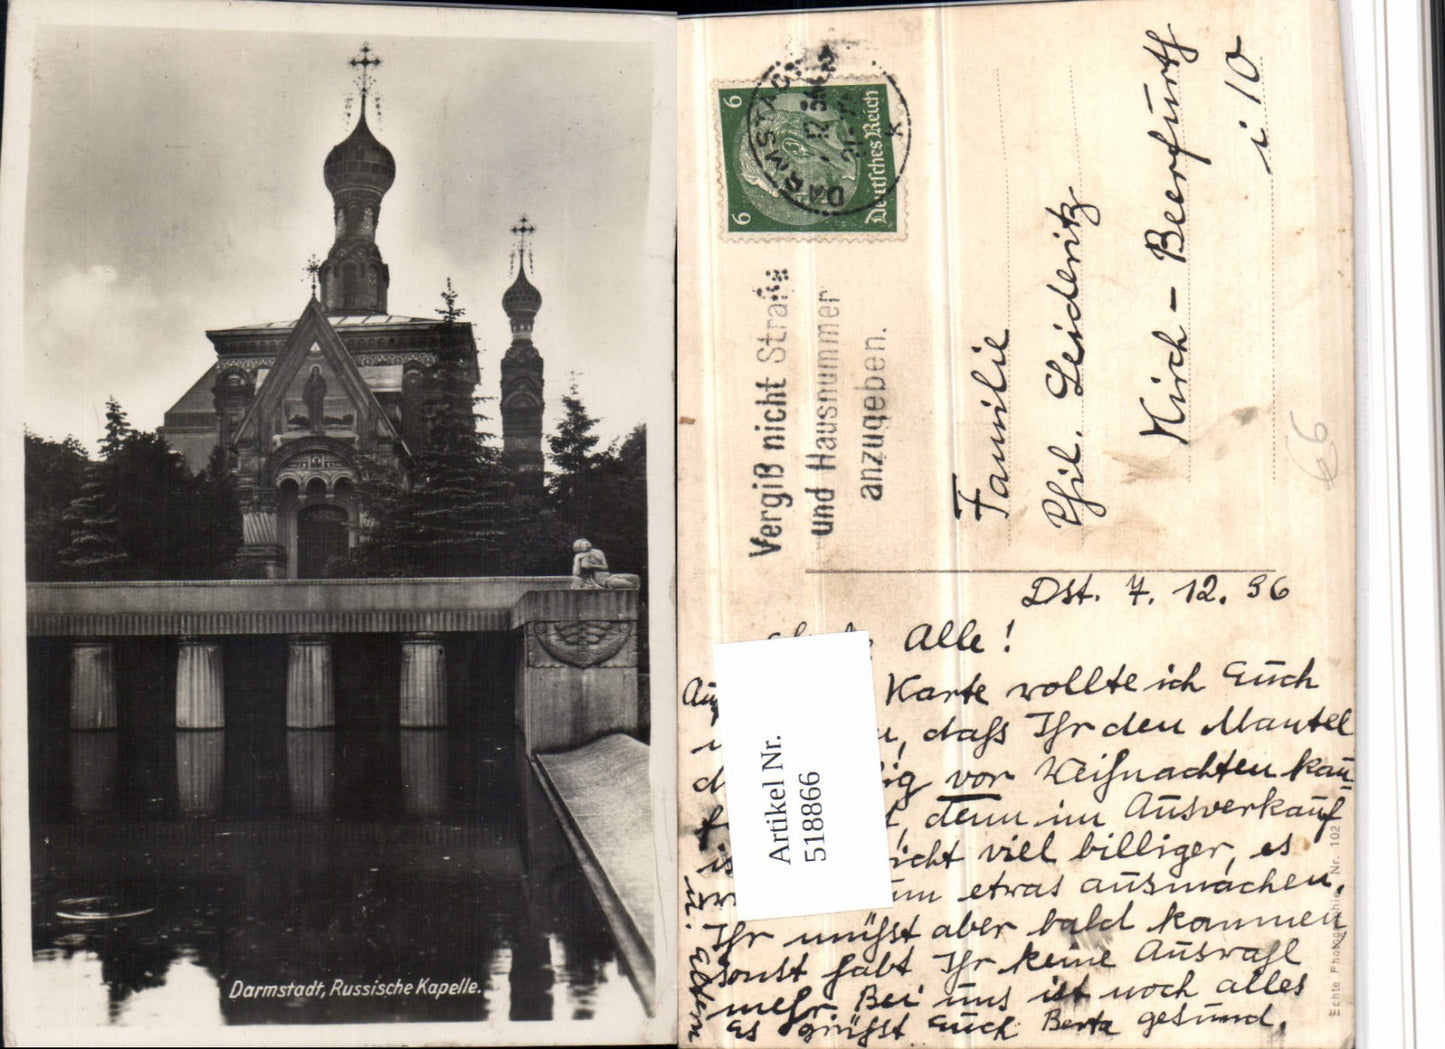 Darmstadt, Russische Kapelle.
6
6
Deutsches Reich
DARMSTADT
Vergiß nicht Straße
und Hausnummer
anzugeben.
Familie
Phil. Leideritz
Kirch - Beerfurth
i 10
66
Dst. 7. 12. 36
Alle!
Karte wollte ich Euch
daß Ihr den Mantel
vor Weihnachten kau
denn im Ausverkauf
viel billiger, es
etwas ausmachen.
Ihr müßt aber bald kommen,
sonst habt Ihr keine Auswahl
mehr. Bei uns ist noch alles
gesund.
Es grüßt Euch Berta
u. Eltern
Artikel Nr.
518866
Echte Photographie Nr. 102